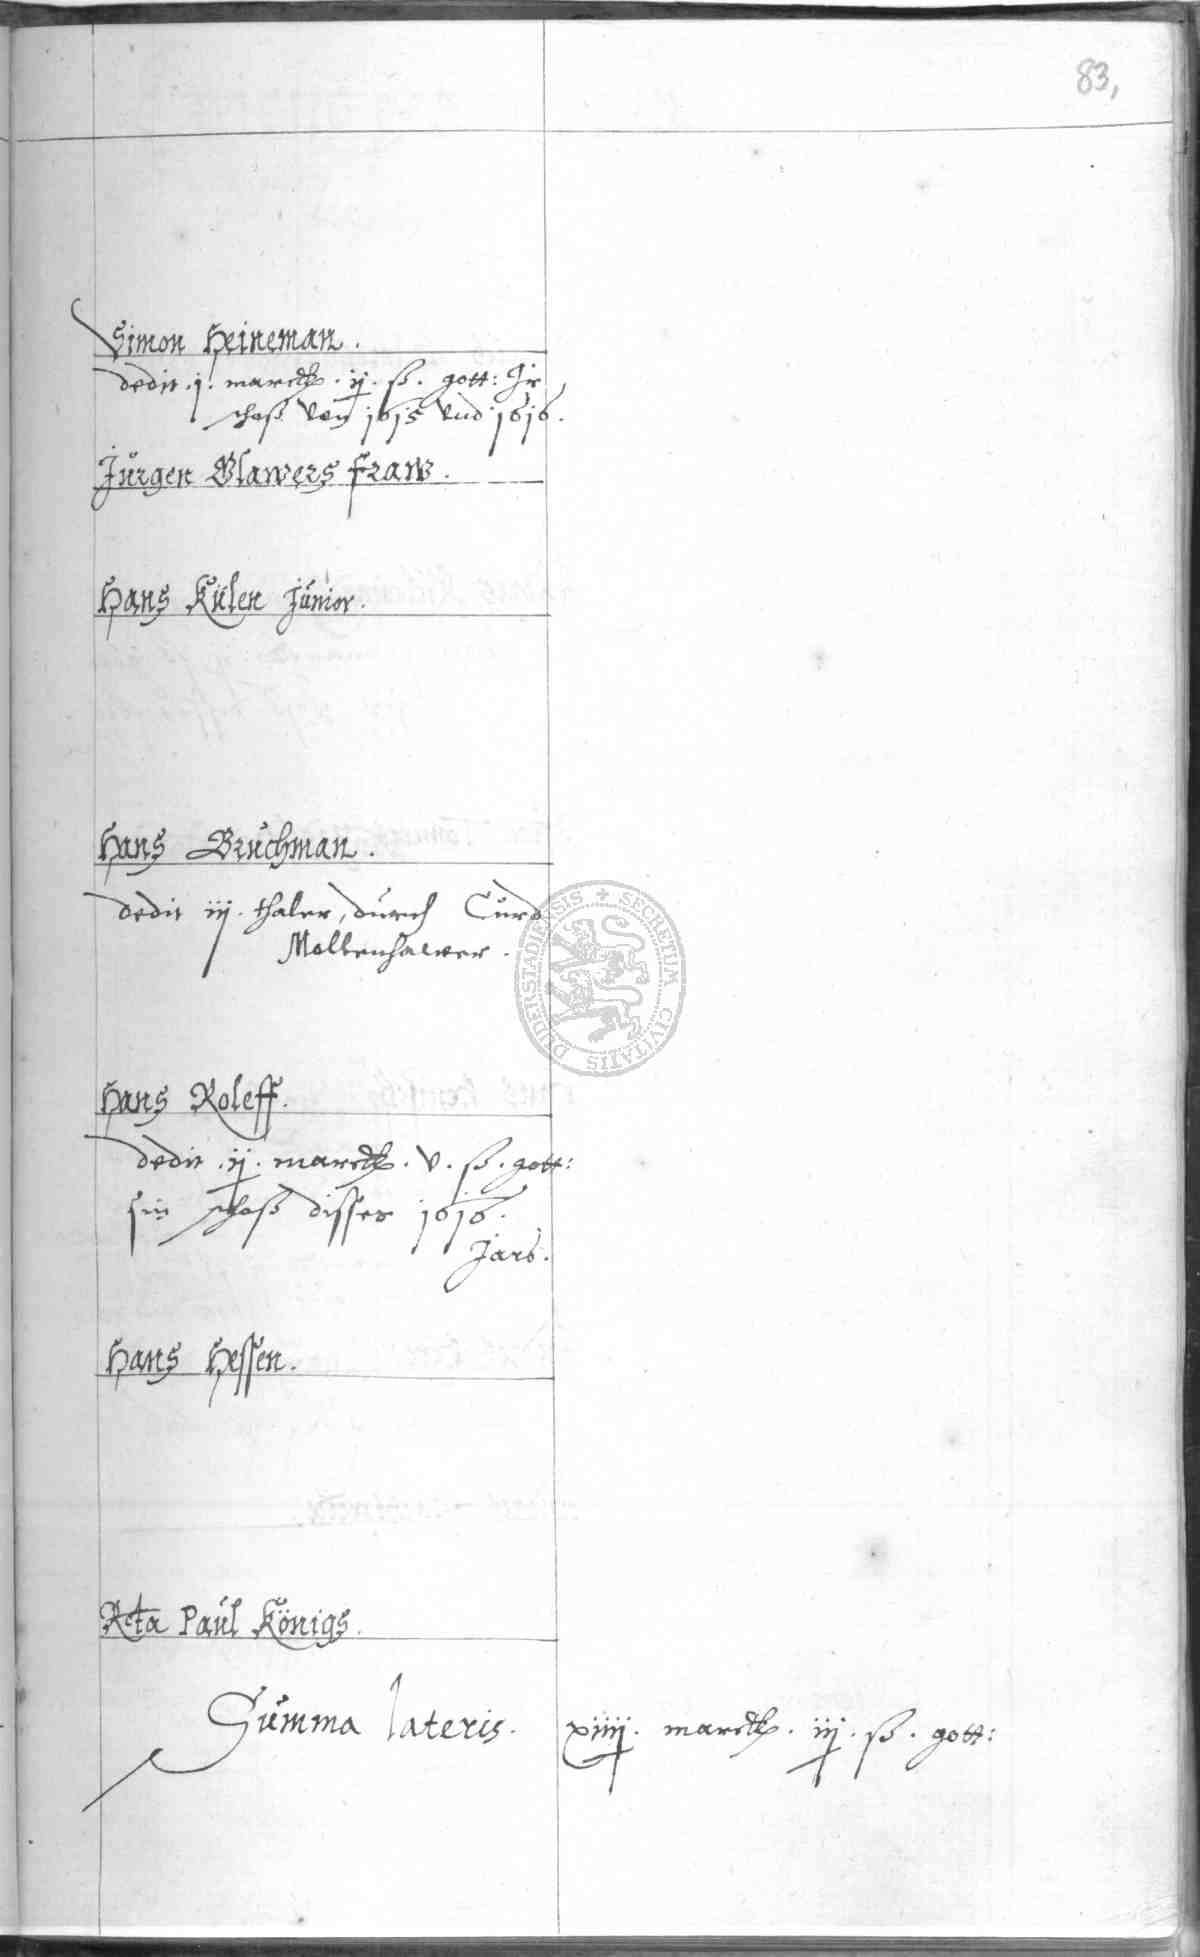 83,
Simon Heineman.
dedit .j. marck. ij. ß. gott: Ir
schoß von 1615 vnd 1616.
Jürgen Blawers fraw.
Hans Külen Junior.
Hans Bruchman.
dedit iij. thaler, durch Curd
Mollenhawer.
DUDERSTADIENSIS + SECRETUM CIVITATIS
Hans Roleff.
dedit .ij. marck. v. ß. gott:
sin schoß disses 1616.
Jars.
Hans Hessen.
Rcta Paul Königs.
Summa lateris. xiiij. marck. iij. ß. gott: